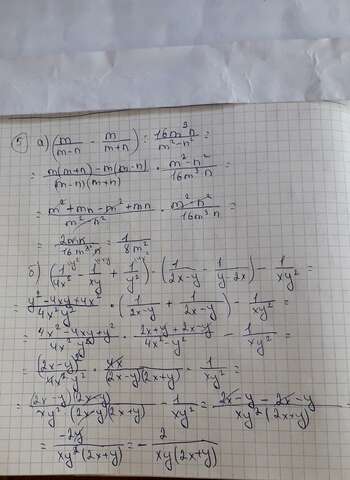 5 а) (m/(m-n) - m/(m+n)) : 16m³n/(m²-n²) =
= (m(m+n)-m(m-n))/((m-n)(m+n)) · (m²-n²)/(16m³n) =
= (m²+mn-m²+mn)/(m²-n²) · (m²-n²)/(16m³n) =
= 2mn/(16m³n) = 1/(8m²)
б) (1/(4x²) - 1/(xy) + 1/y²) · (1/(2x-y) - 1/(y-2x)) - 1/(xy²) =
= (y²-4xy+4x²)/(4x²y²) · (1/(2x-y) + 1/(2x-y)) - 1/(xy²) =
= (4x²-4xy+y²)/(4x²y²) · (2x+y+2x-y)/(4x²-y²) - 1/(xy²) =
= (2x-y)²/(4x²y²) · 4x/((2x-y)(2x+y)) - 1/(xy²) =
= (2x-y)(2x-y)/(xy²(2x-y)(2x+y)) - 1/(xy²) = (2x-y-2x-y)/(xy²(2x+y)) =
= -2y/(xy²(2x+y)) = - 2/(xy(2x+y))